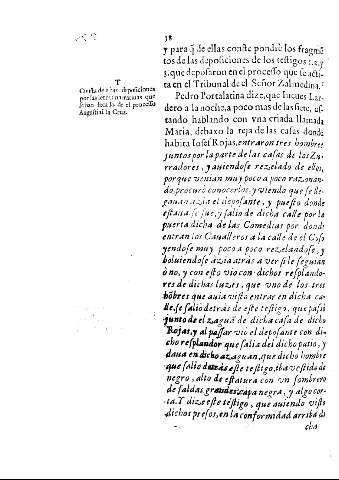 38
y para q̃ de ellas conste pondrè los fragmẽ
tos de las deposiciones de los testigos 1.2. y
3. que deposaron en el processo que se acti-
ta en el Tribunal de el Señor Zalmedina.
Pedro Portalatina dize, que Iueues Lar-
dero a la noche, a poco mas de las siete, es-
tando hablando con vna criada llamada
Maria, debaxo la reja de las casas donde
habita Iosef Rojas, entraron tres hombres
juntos por la parte de las casas de los Zu-
rradores, y auiendose rezelado de ellos,
porque venian muy poco a poco razonan-
do, procurò conocerlos, y viendo que se lle-
gauan azia el deposante, y puesto donde
estaua se fue, y salio de dicha calle por la
puerta dicha de las Comedias por donde
entran los Caualleros a la calle de el Coso
yendose muy poco a poco rezelandose, y
boluiendose azia atràs a ver si le seguian
ò no, y con esto vio con dichos resplando-
res de dichas luzes, que vno de los tres
hõbres que auia visto entrar en dicha ca-
lle, se salio detràs de este testigo, que passò
junto de el zaguã de dicha casa de dicho
Rojas, y al passar viò el deposante con di-
cho resplandor que salia del dicho patio, y
daua en dicho azaguan, que dicho hombre
que salio detràs este testigo, iba vestido de
negro, alto de estatura con vn sombrero
de faldas grandes capa negra, y algo cor-
ta. Y dize este testigo, que auiendo visto
dichos presos, en la conformidad arriba di
cha
T
Consta de estas deposiciones
por las letras narratiuas que
se han sacado de el processo
Augustini la Crus.